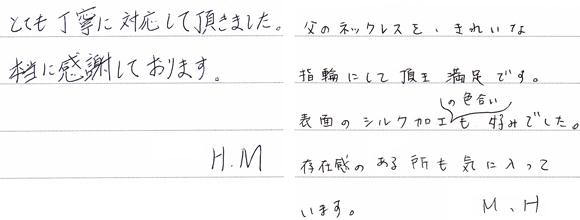 とても丁寧に対応して頂きました。
本当に感謝しております。
H.M
父のネックレスを、きれいな
指輪にして頂き 満足です。
表面のシルク加工の色合いも 好みでした。
存在感のある所も気に入って
います。
M、H